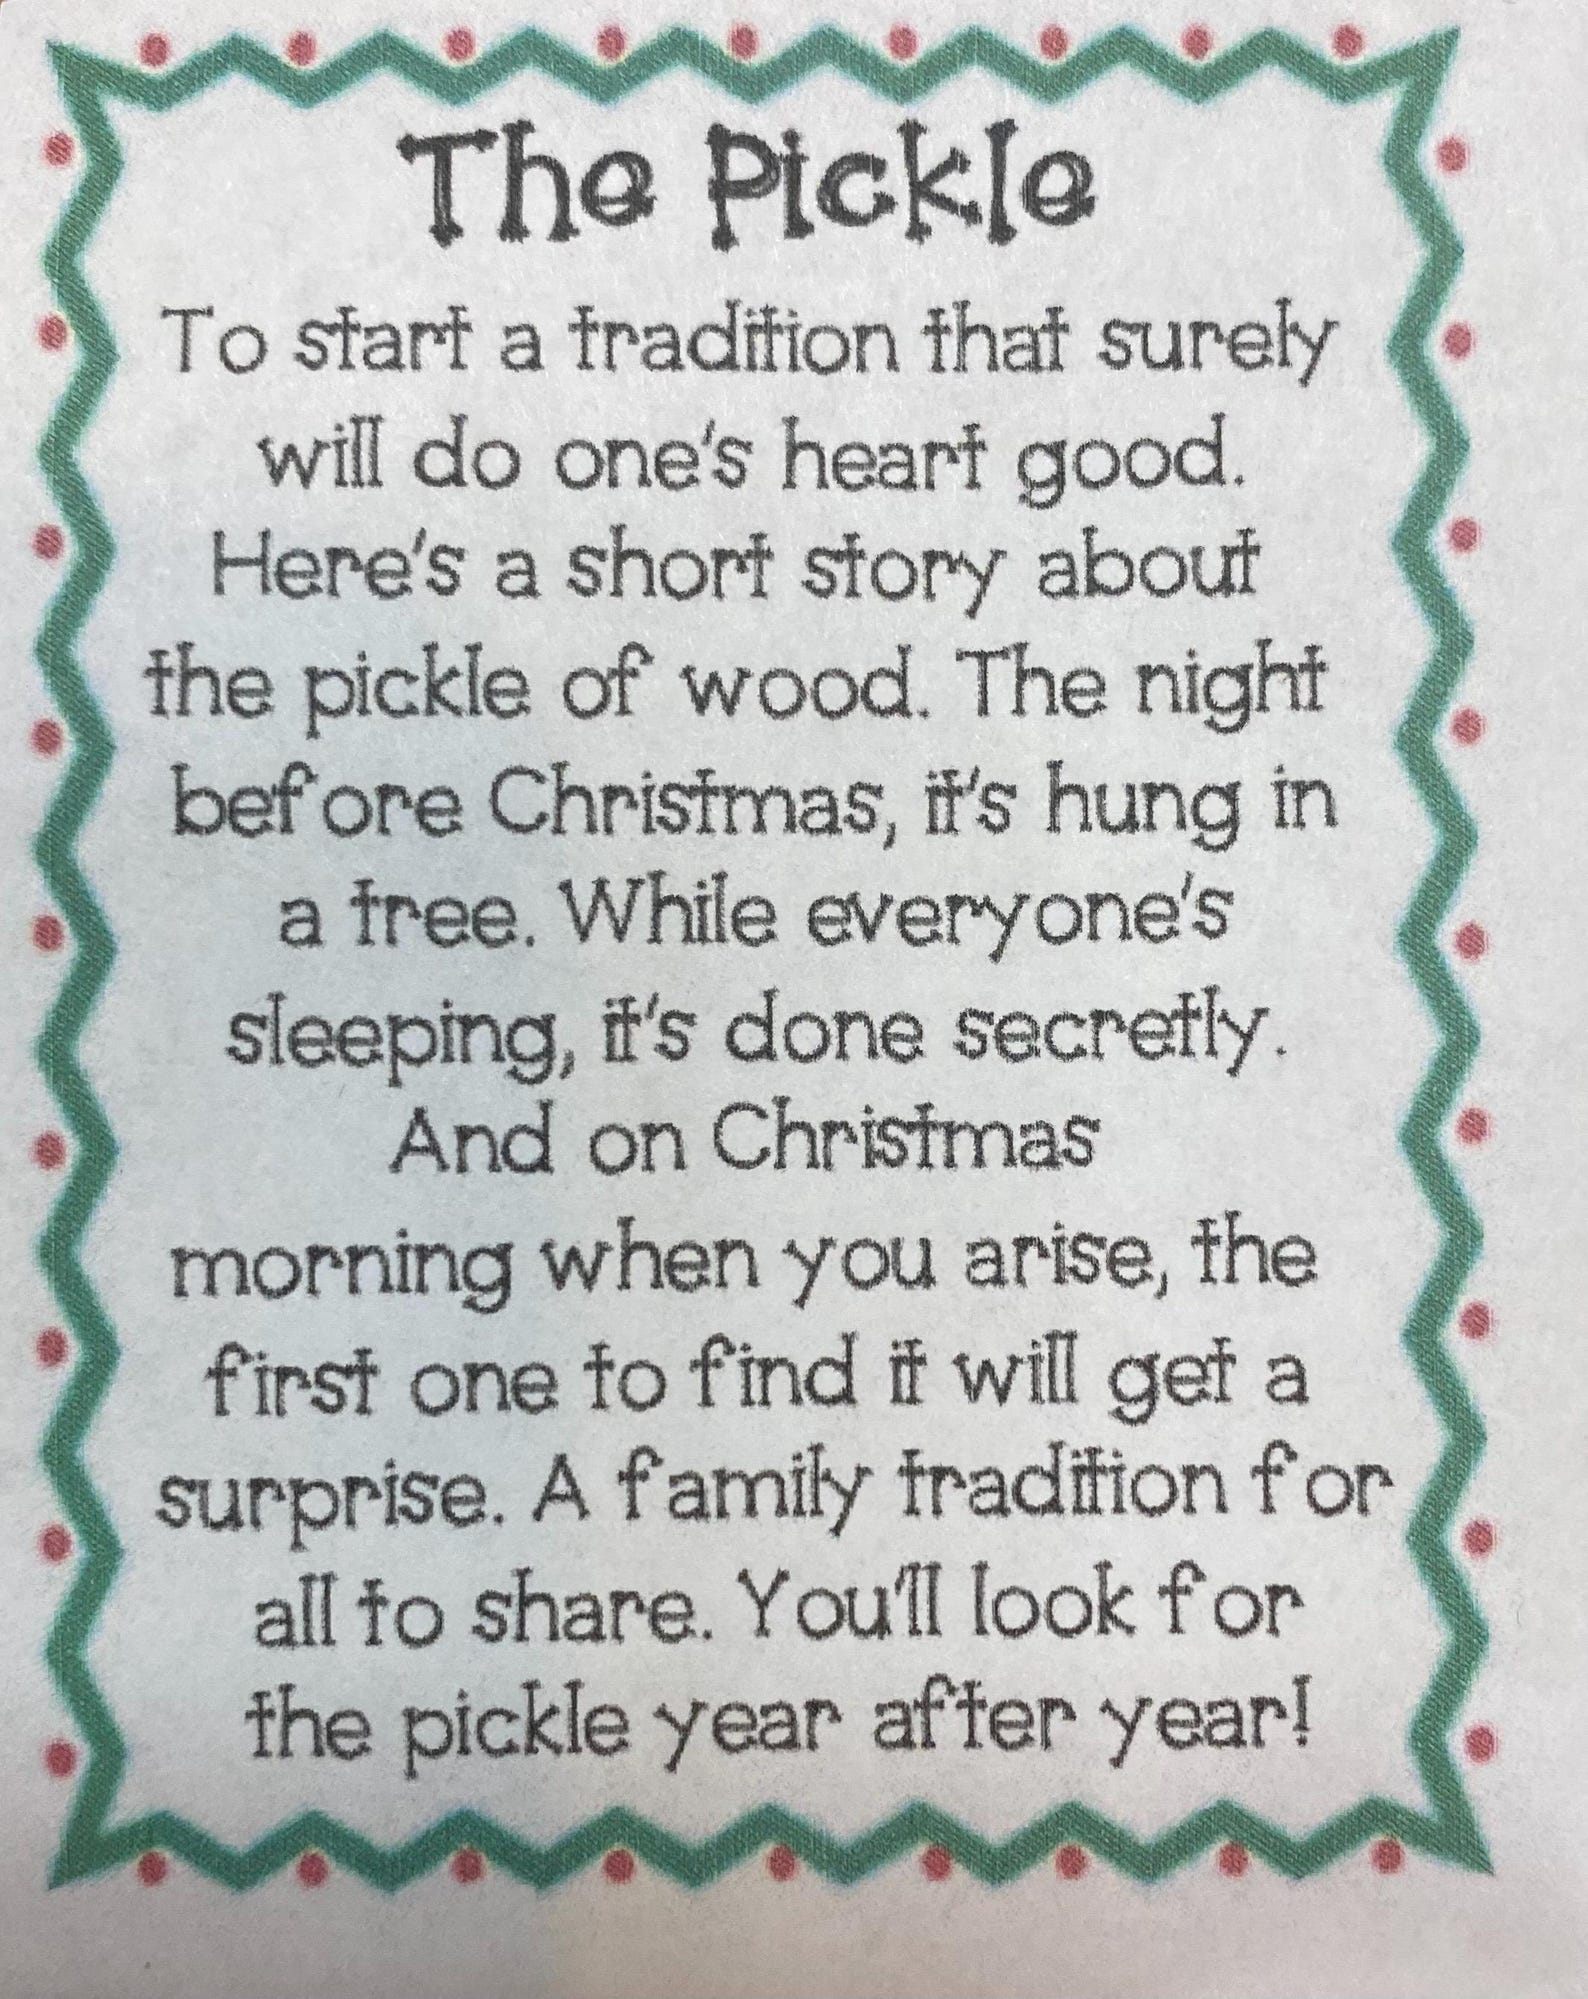 The Pickle
To start a tradition that surely
will do one's heart good.
Here's a short story about
the pickle of wood. The night
before Christmas, it's hung in
a tree. While everyone's
sleeping, it's done secretly.
And on Christmas
morning when you arise, the
first one to find it will get a
surprise. A family tradition for
all to share. You'll look for
the pickle year after year!